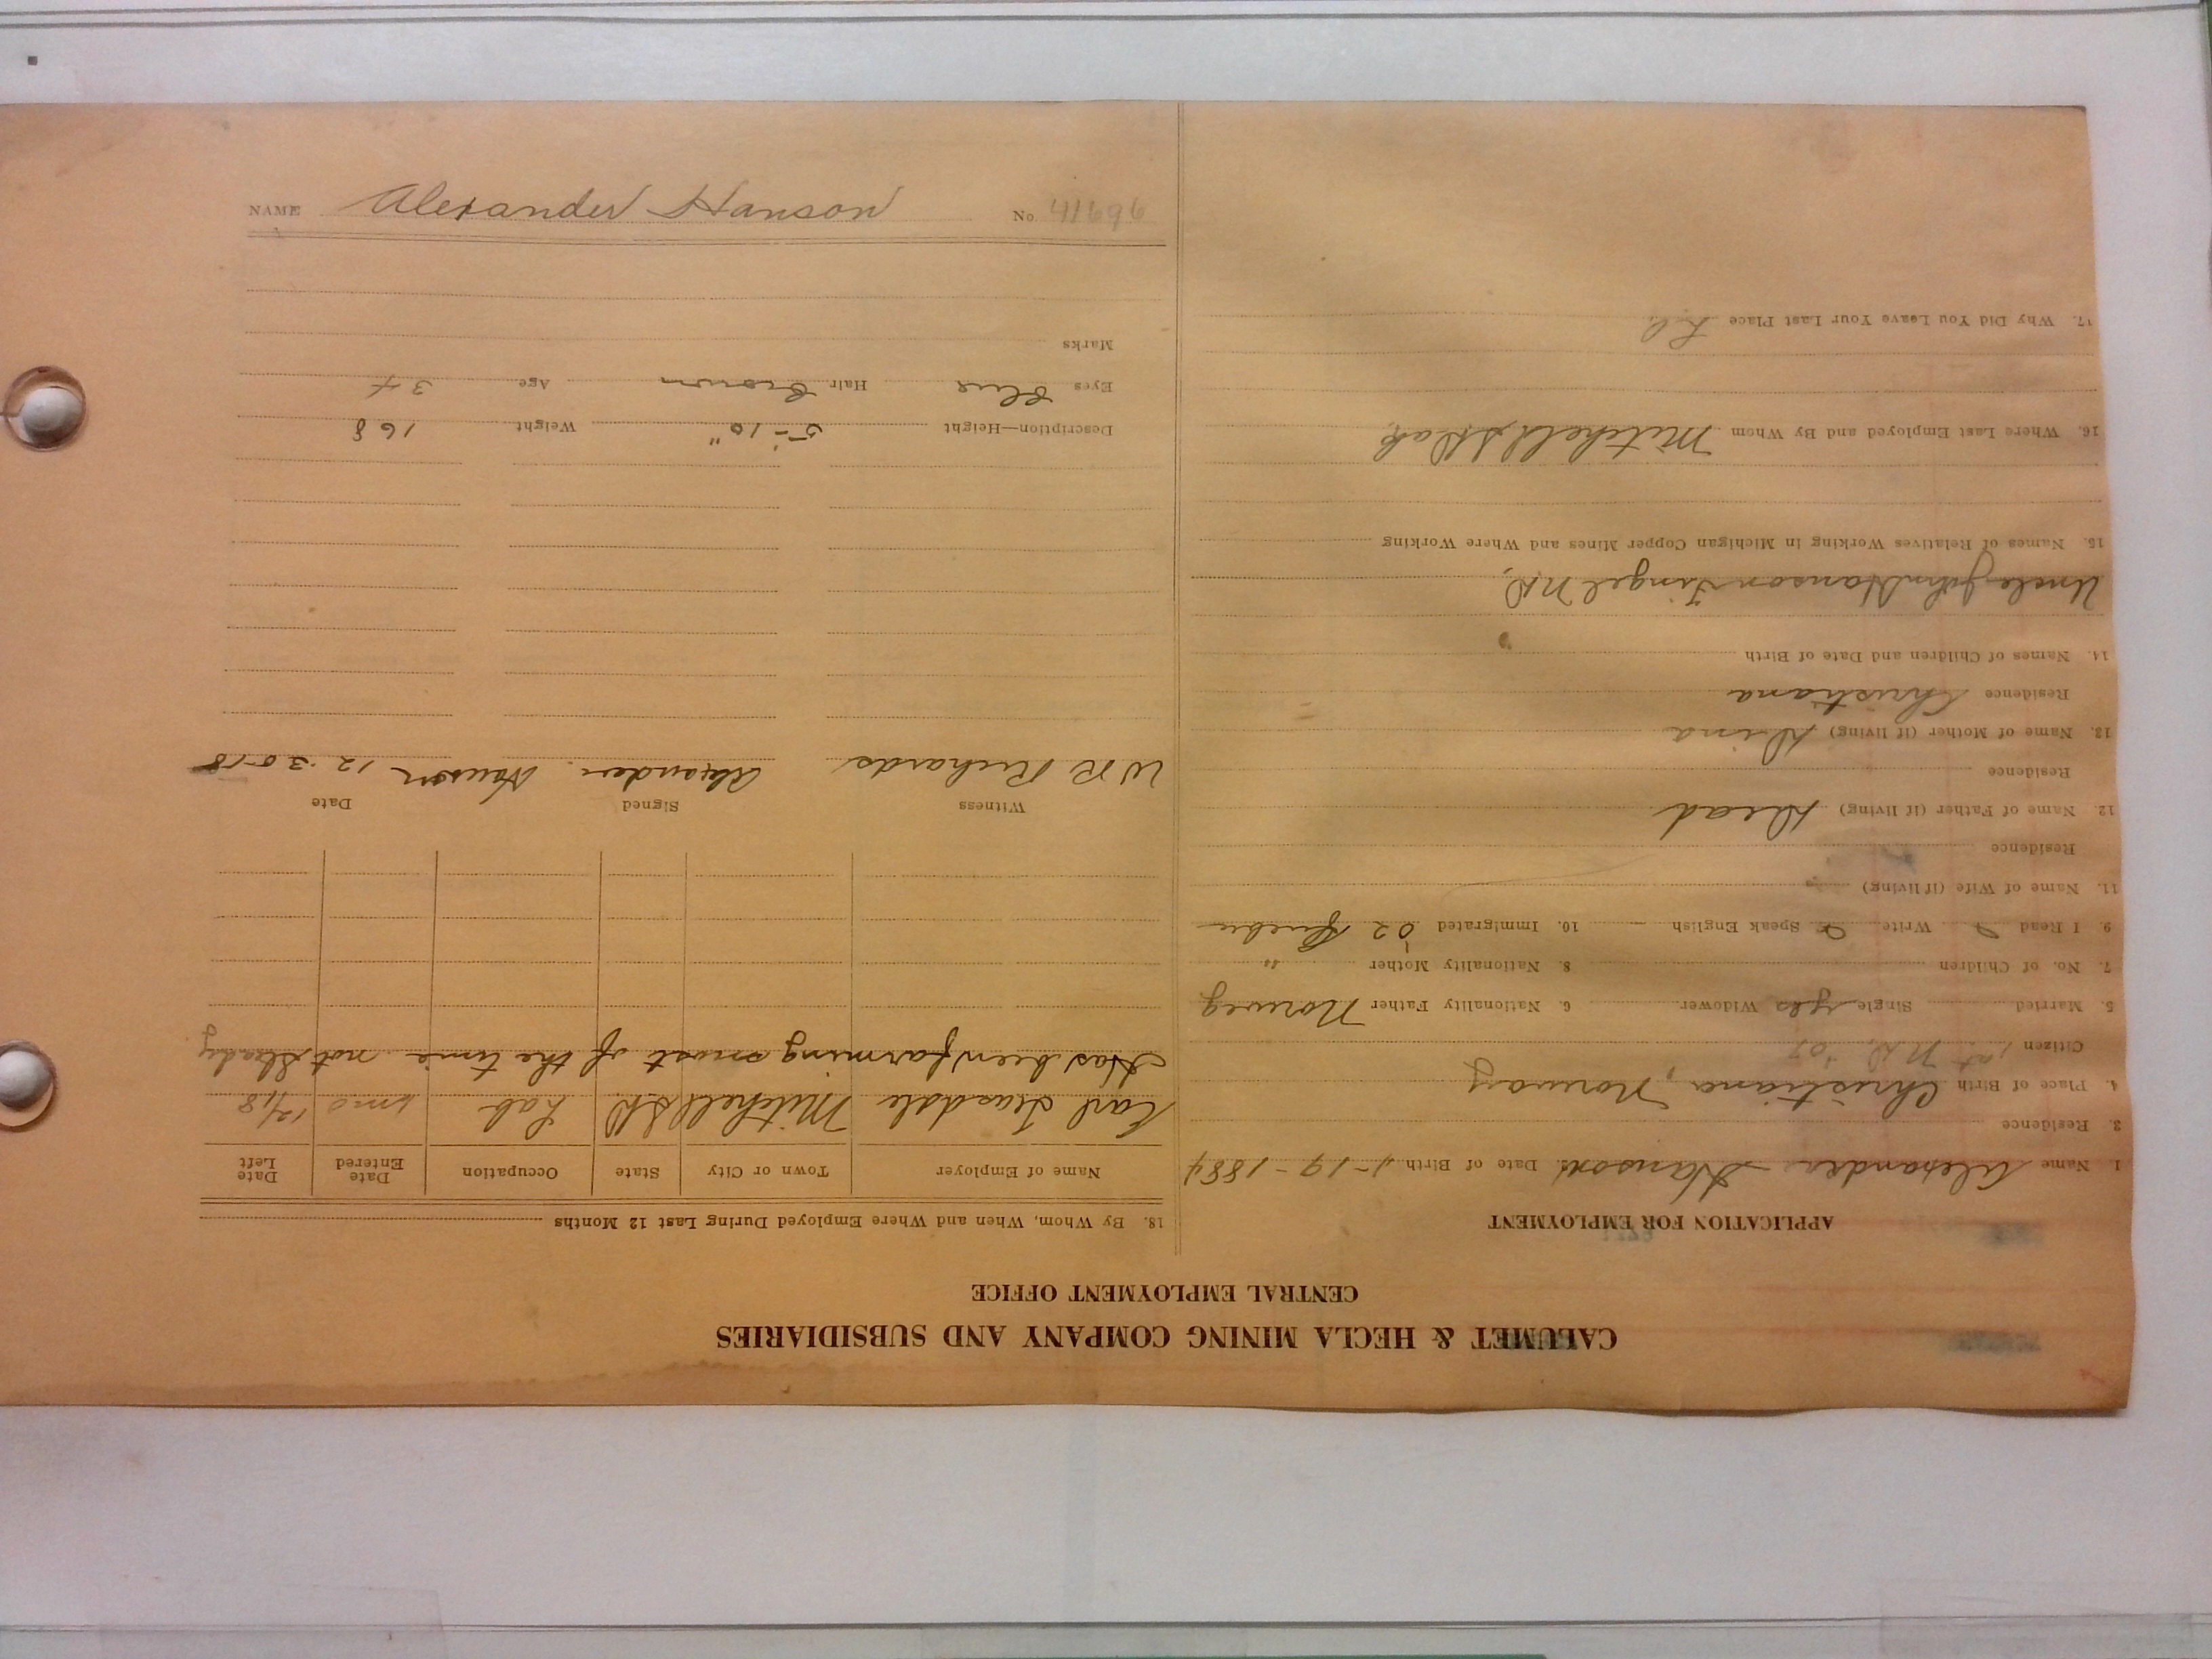 CALUMET & HECLA MINING COMPANY AND SUBSIDIARIES
CENTRAL EMPLOYMENT OFFICE
APPLICATION FOR EMPLOYMENT
1. Name Alexander Hanson Date of Birth 4-19-1884
3. Residence
4. Place of Birth Christiana, Norway
Citizen 1st N.D. '07
5. Married Single yes Widower 6. Nationality Father Norweg
7. No. of Children 8. Nationality Mother "
9. I Read Write Speak English 10. Immigrated '02 Quebec
11. Name of Wife (if living)
Residence
12. Name of Father (if living) Dead
Residence
13. Name of Mother (if living) Dina
Residence Christiana
14. Names of Children and Date of Birth
Uncle John Hanson Fingel N.D.
15. Names of Relatives Working in Michigan Copper Mines and Where Working
16. Where Last Employed and By Whom Mitchell S Dak
17. Why Did You Leave Your Last Place
18. By Whom, When and Where Employed During Last 12 Months
Name of Employer Town or City State Occupation Date Entered Date Left
Earl Teasdale Mitchell S.D Lab 12/18
Has been farming most of the time not steady
Witness Signed Date
W R Richards Alexander Hanson 12-30-18
Description—Height 5'-10" Weight 168
Eyes Blue Hair Brown Age 34
Marks
NAME Alexander Hanson No. 41696